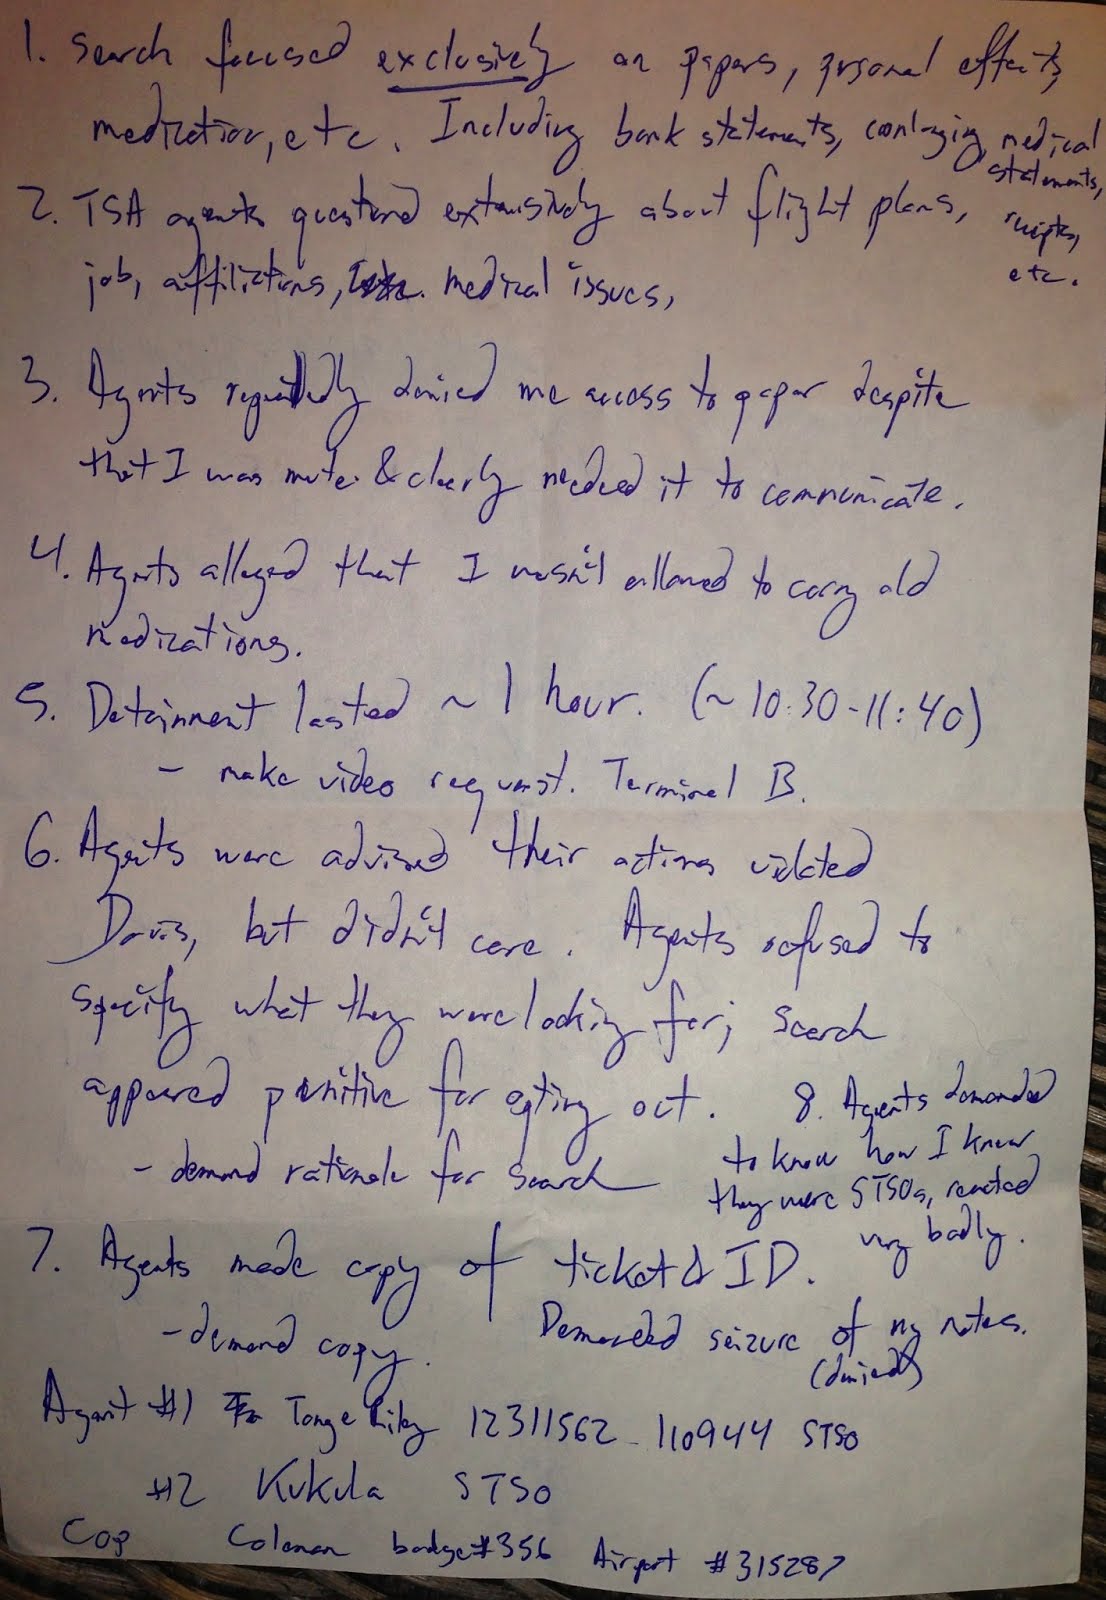 1. Search focused exclusively on papers, personal effects,
medication, etc. Including bank statements, medical
statements,
receipts,
etc.
2. TSA agents questioned extensively about flight plans,
job, affiliations, medical issues,
3. Agents repeatedly denied me access to paper despite
that I was mute & clearly needed it to communicate.
4. Agents alleged that I wasn't allowed to carry old
medications.
5. Detainment lasted ~ 1 hour. (~ 10:30-11:40)
- make video request. Terminal B.
6. Agents were advised their actions violated
Davis, but didn't care. Agents refused to
specify what they were looking for; search
appeared punitive for opting out.
- demand rationale for search
8. Agents demanded
to know how I knew
they were STSOs, reacted
very badly.
7. Agents made copy of ticket & ID.
- demand copy.
Demanded seizure of my notes.
(denied)
Agent #1 12311562 - 110944 STSO
#2 Kukula STSO
Cop Coleman badge #356 Airport #315287